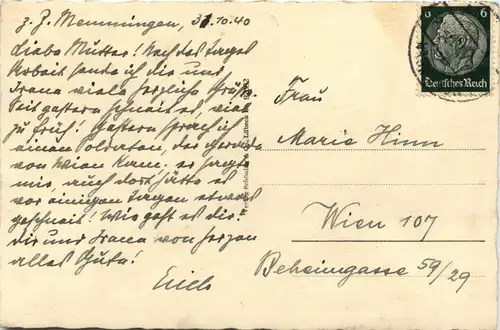 z. Z. Memmingen, 31.10.40
Liebe Mutter! Nach des Tages
Arbeit sende ich dir und
viele herzliche Grüße.
Seit gestern schneit es, viel
zu früh! Gestern sprach ich
einen Soldaten, der gerade
von Wien kam. er sagte
mir, auch dort hätte es
vor einigen Tagen etwas
geschneit! Wie geht es dir.
dir und von Herzen
alles Gute!
Erich
6 6
Deutsches Reich
Frau
Marie Hinn
Wien 107
Beheimgasse 59/29